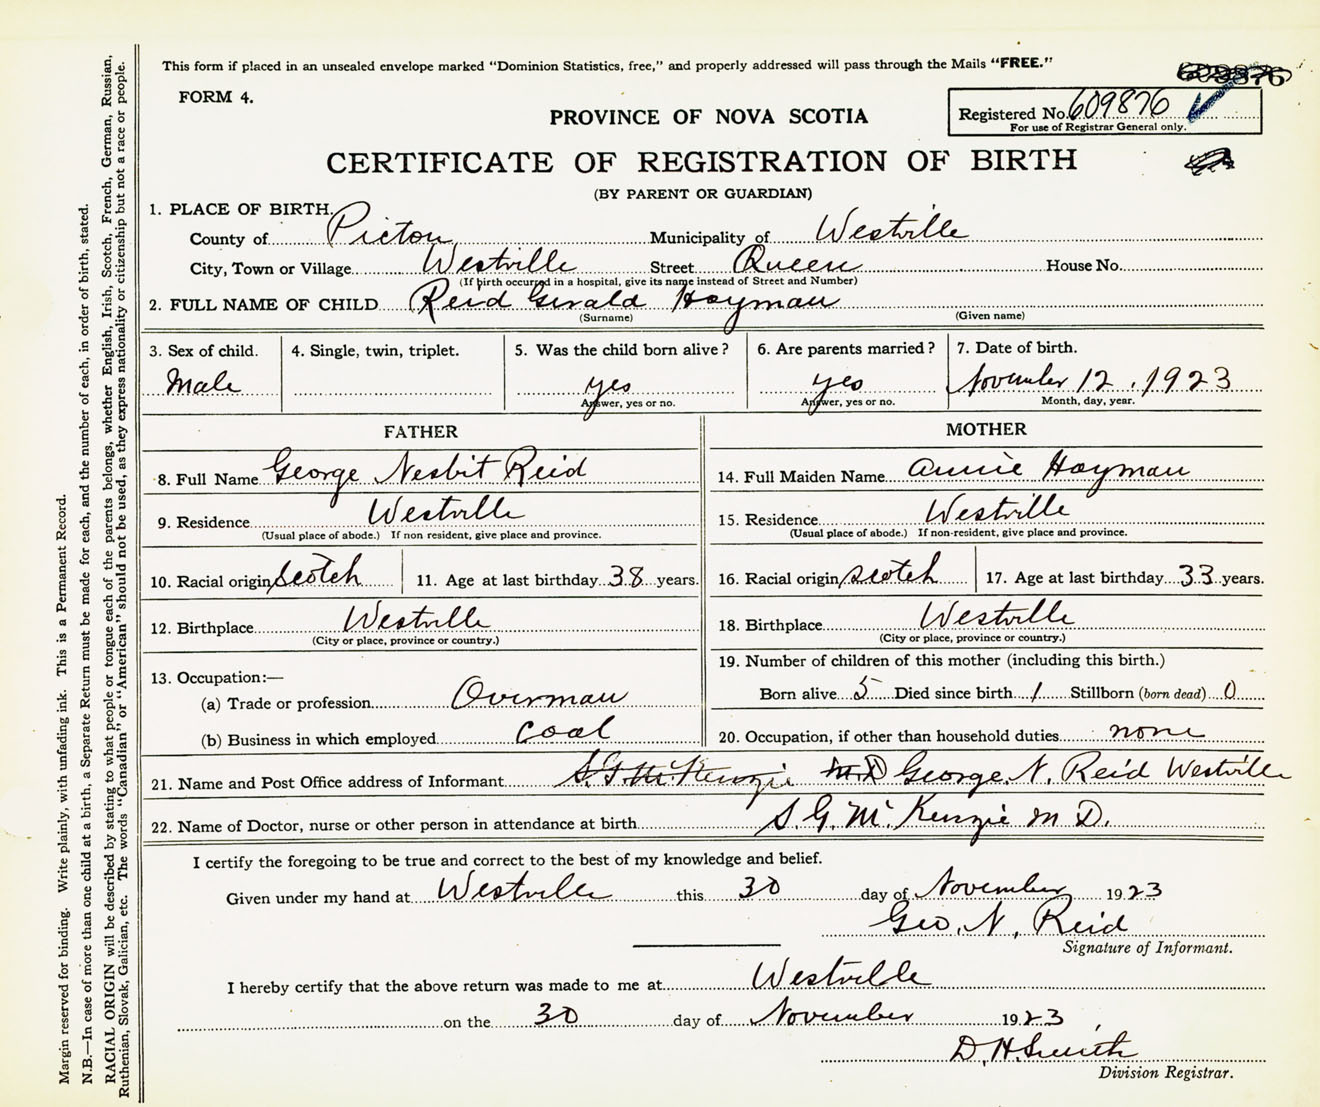 This form if placed in an unsealed envelope marked "Dominion Statistics, free," and properly addressed will pass through the Mails "FREE."
FORM 4.
Registered No. 609876
For use of Registrar General only.
PROVINCE OF NOVA SCOTIA
CERTIFICATE OF REGISTRATION OF BIRTH
(BY PARENT OR GUARDIAN)
1. PLACE OF BIRTH.
County of Pictou Municipality of Westville
City, Town or Village Westville Street Queen House No.
(If birth occurred in a hospital, give its name instead of Street and Number)
2. FULL NAME OF CHILD Reid Gerald Hayman
(Surname) (Given name)
3. Sex of child. 4. Single, twin, triplet. 5. Was the child born alive? 6. Are parents married? 7. Date of birth.
Male yes yes November 12, 1923
Answer, yes or no. Answer, yes or no. Month, day, year.
FATHER MOTHER
8. Full Name George Nesbit Reid 14. Full Maiden Name Annie Hayman
9. Residence Westville 15. Residence Westville
(Usual place of abode.) If non resident, give place and province. (Usual place of abode.) If non-resident, give place and province.
10. Racial origin Scotch 11. Age at last birthday 38 years. 16. Racial origin Scotch 17. Age at last birthday 33 years.
12. Birthplace Westville 18. Birthplace Westville
(City or place, province or country.) (City or place, province or country.)
13. Occupation:— 19. Number of children of this mother (including this birth.)
(a) Trade or profession Overman Born alive 5 Died since birth 1 Stillborn (born dead) 0
(b) Business in which employed Coal 20. Occupation, if other than household duties none
21. Name and Post Office address of Informant S. G. McKenzie M.D George N. Reid Westville
22. Name of Doctor, nurse or other person in attendance at birth S. G. McKenzie M D.
I certify the foregoing to be true and correct to the best of my knowledge and belief.
Given under my hand at Westville this 30 day of November 1923
Geo. N. Reid
Signature of Informant.
I hereby certify that the above return was made to me at Westville
on the 30 day of November 1923
D. H. Smith
Division Registrar.
Margin reserved for binding. Write plainly, with unfading ink. This is a Permanent Record.
N.B.—In case of more than one child at a birth, a Separate Return must be made for each, and the number of each, in order of birth, stated.
RACIAL ORIGIN will be described by stating to what people or tongue each of the parents belongs, whether English, Irish, Scotch, French, German, Russian,
Ruthenian, Slovak, Galician, etc. The words "Canadian" or "American" should not be used, as they express nationality or citizenship but not a race or people.